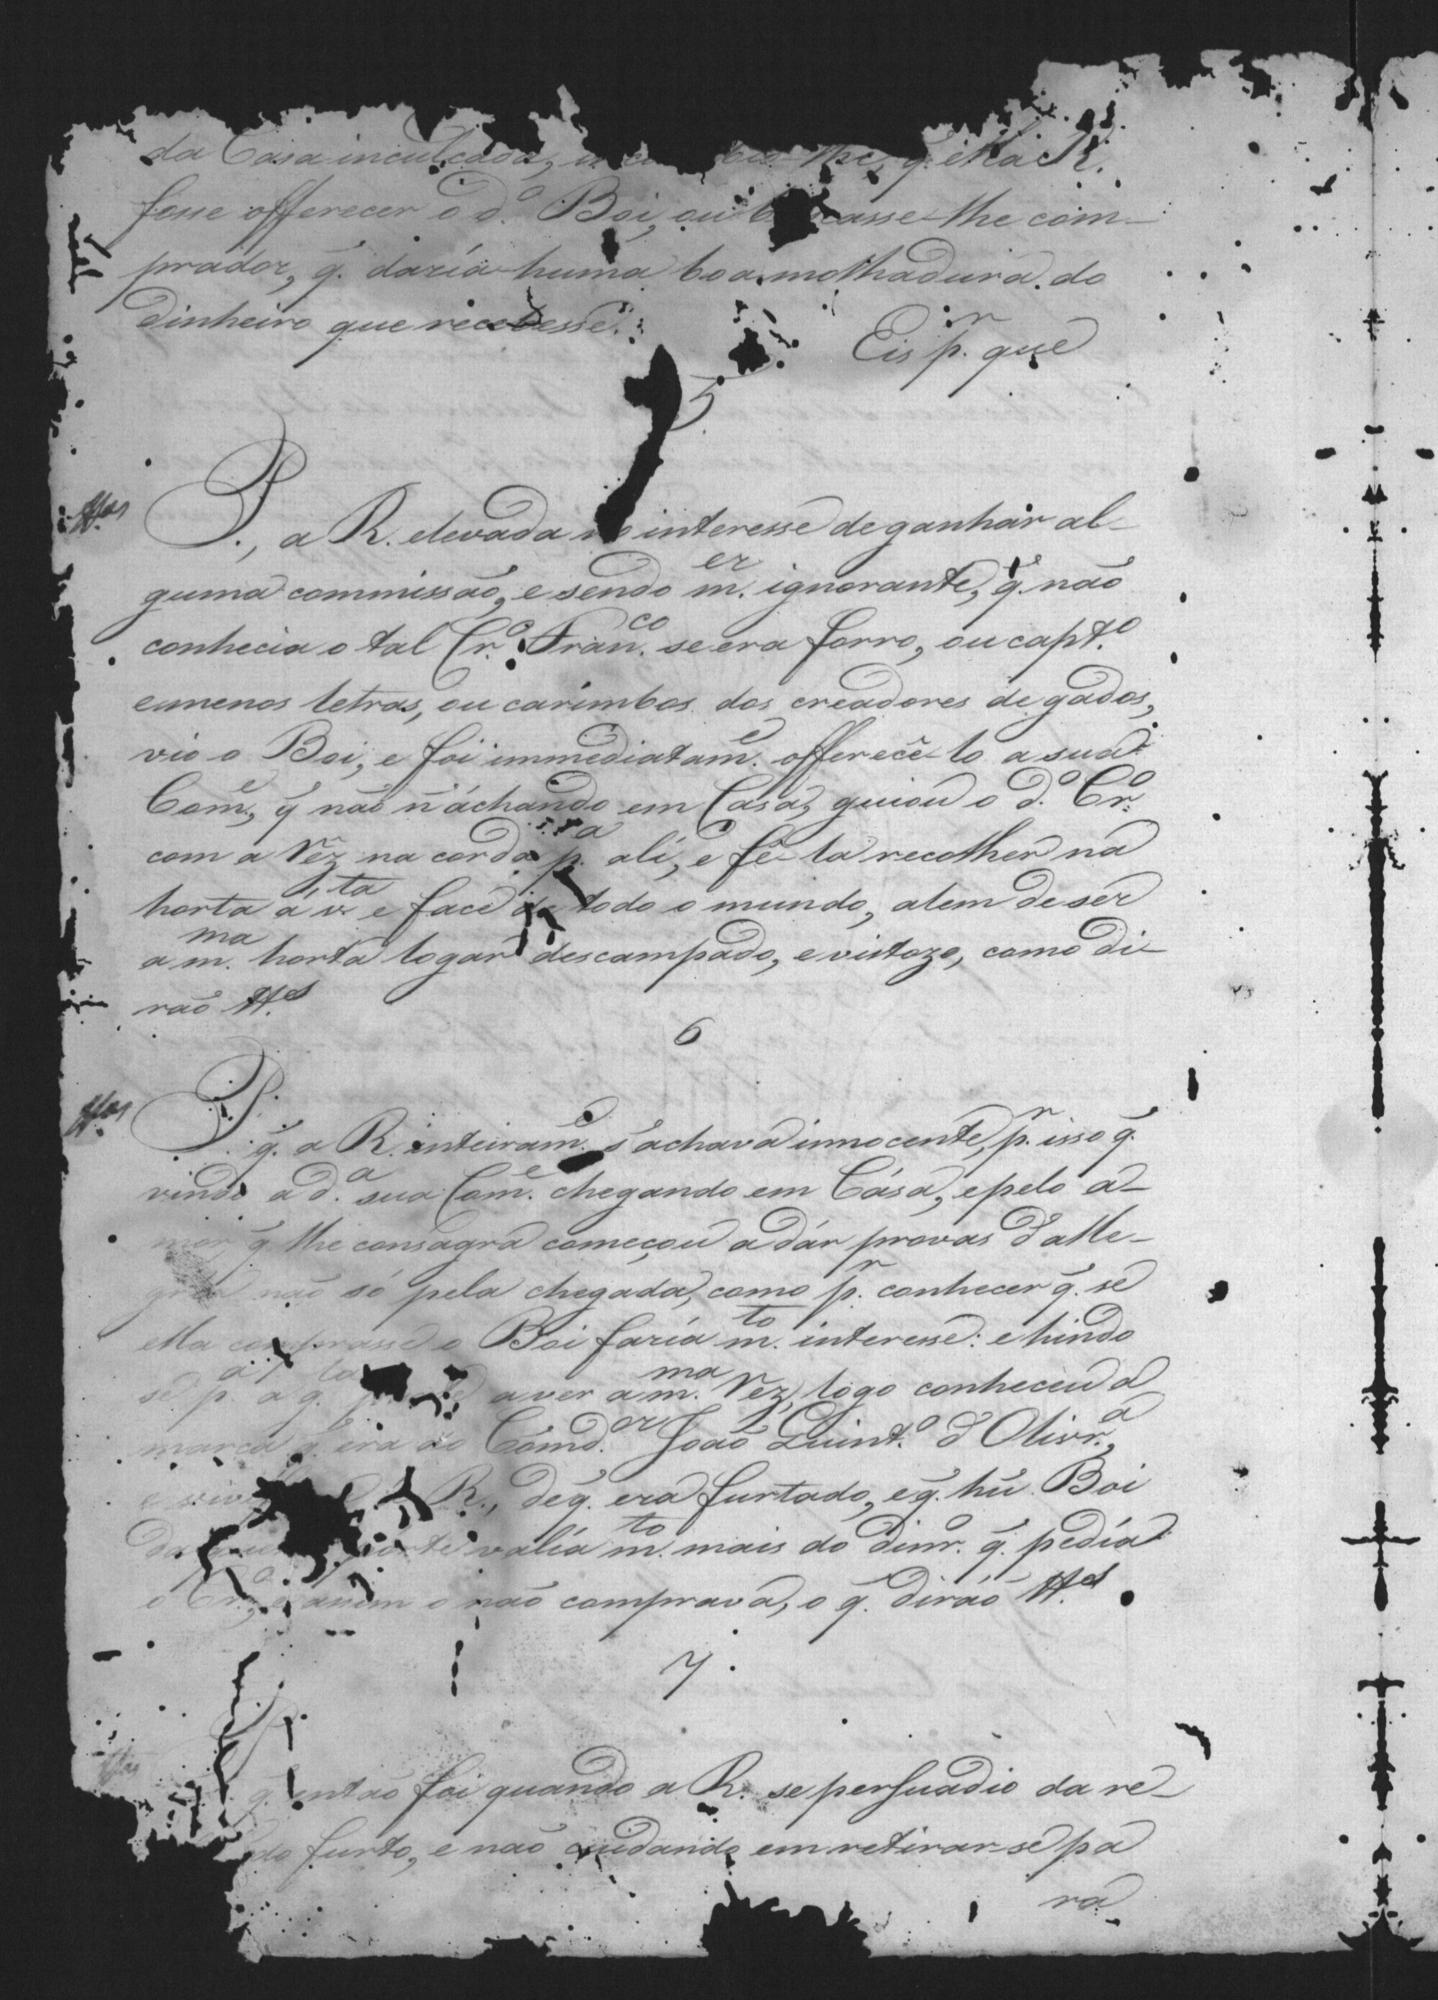 da Casa inculcada, lhe, q̃. ella R.
fosse offerecer o d.º Boi, ou buscasse-lhe com-
prador, q̃. daría huma boa molhadura do
dinheiro que recebesse.
Eis p.r que
5
Ttas P., a R. elevada no interesse de ganhar al-
guma commissão, e sendo m.er ignorante, q̃. não
conhecia o tal Cr.º Fran.co se era forro, ou capt.º
e menos letras, ou carimbos dos creadores de gados,
vio o Boi, e foi immediatam.e offerecê-lo a sua
Com.e, q̃ não n'áchando em Casa, guiou o d.º Cr.º
com a Rêz na corda p.ra ali, e fê-la recolher na
horta á v.ta e face de todo o mundo, alem de ser
a m.ma horta logar descampado, e vistozo, como di-
rão Tt.as
6
Ttas P. q̃. a R. inteiram.e s'achava innocente, p.r isso q̃.
vindo a d.a sua Com.e chegando em Cása, e pelo a-
mor, q̃ lhe consagra começou a dár provas d'alle-
gria não só pela chegada, como p.r conhecer q̃. se
ella comprasse o Boi faría m.to interesse: e hindo
se p.a a q̃. a ver a m.ma Rez, logo conheceu a
marca q̃. era do Comd.or João Quint.º d'Olivr.a,
R., de q̃. era furtado, e q̃. hũ Boi
valía m.to mais do dinr.º q̃. pedía
o Cr.º, e assim o não comprava, o q̃. dirão Tt.as
7.
q̃. então foi quando a R. se persuadio da re-
do furto, e não cuidando em retirar-se pa
ra